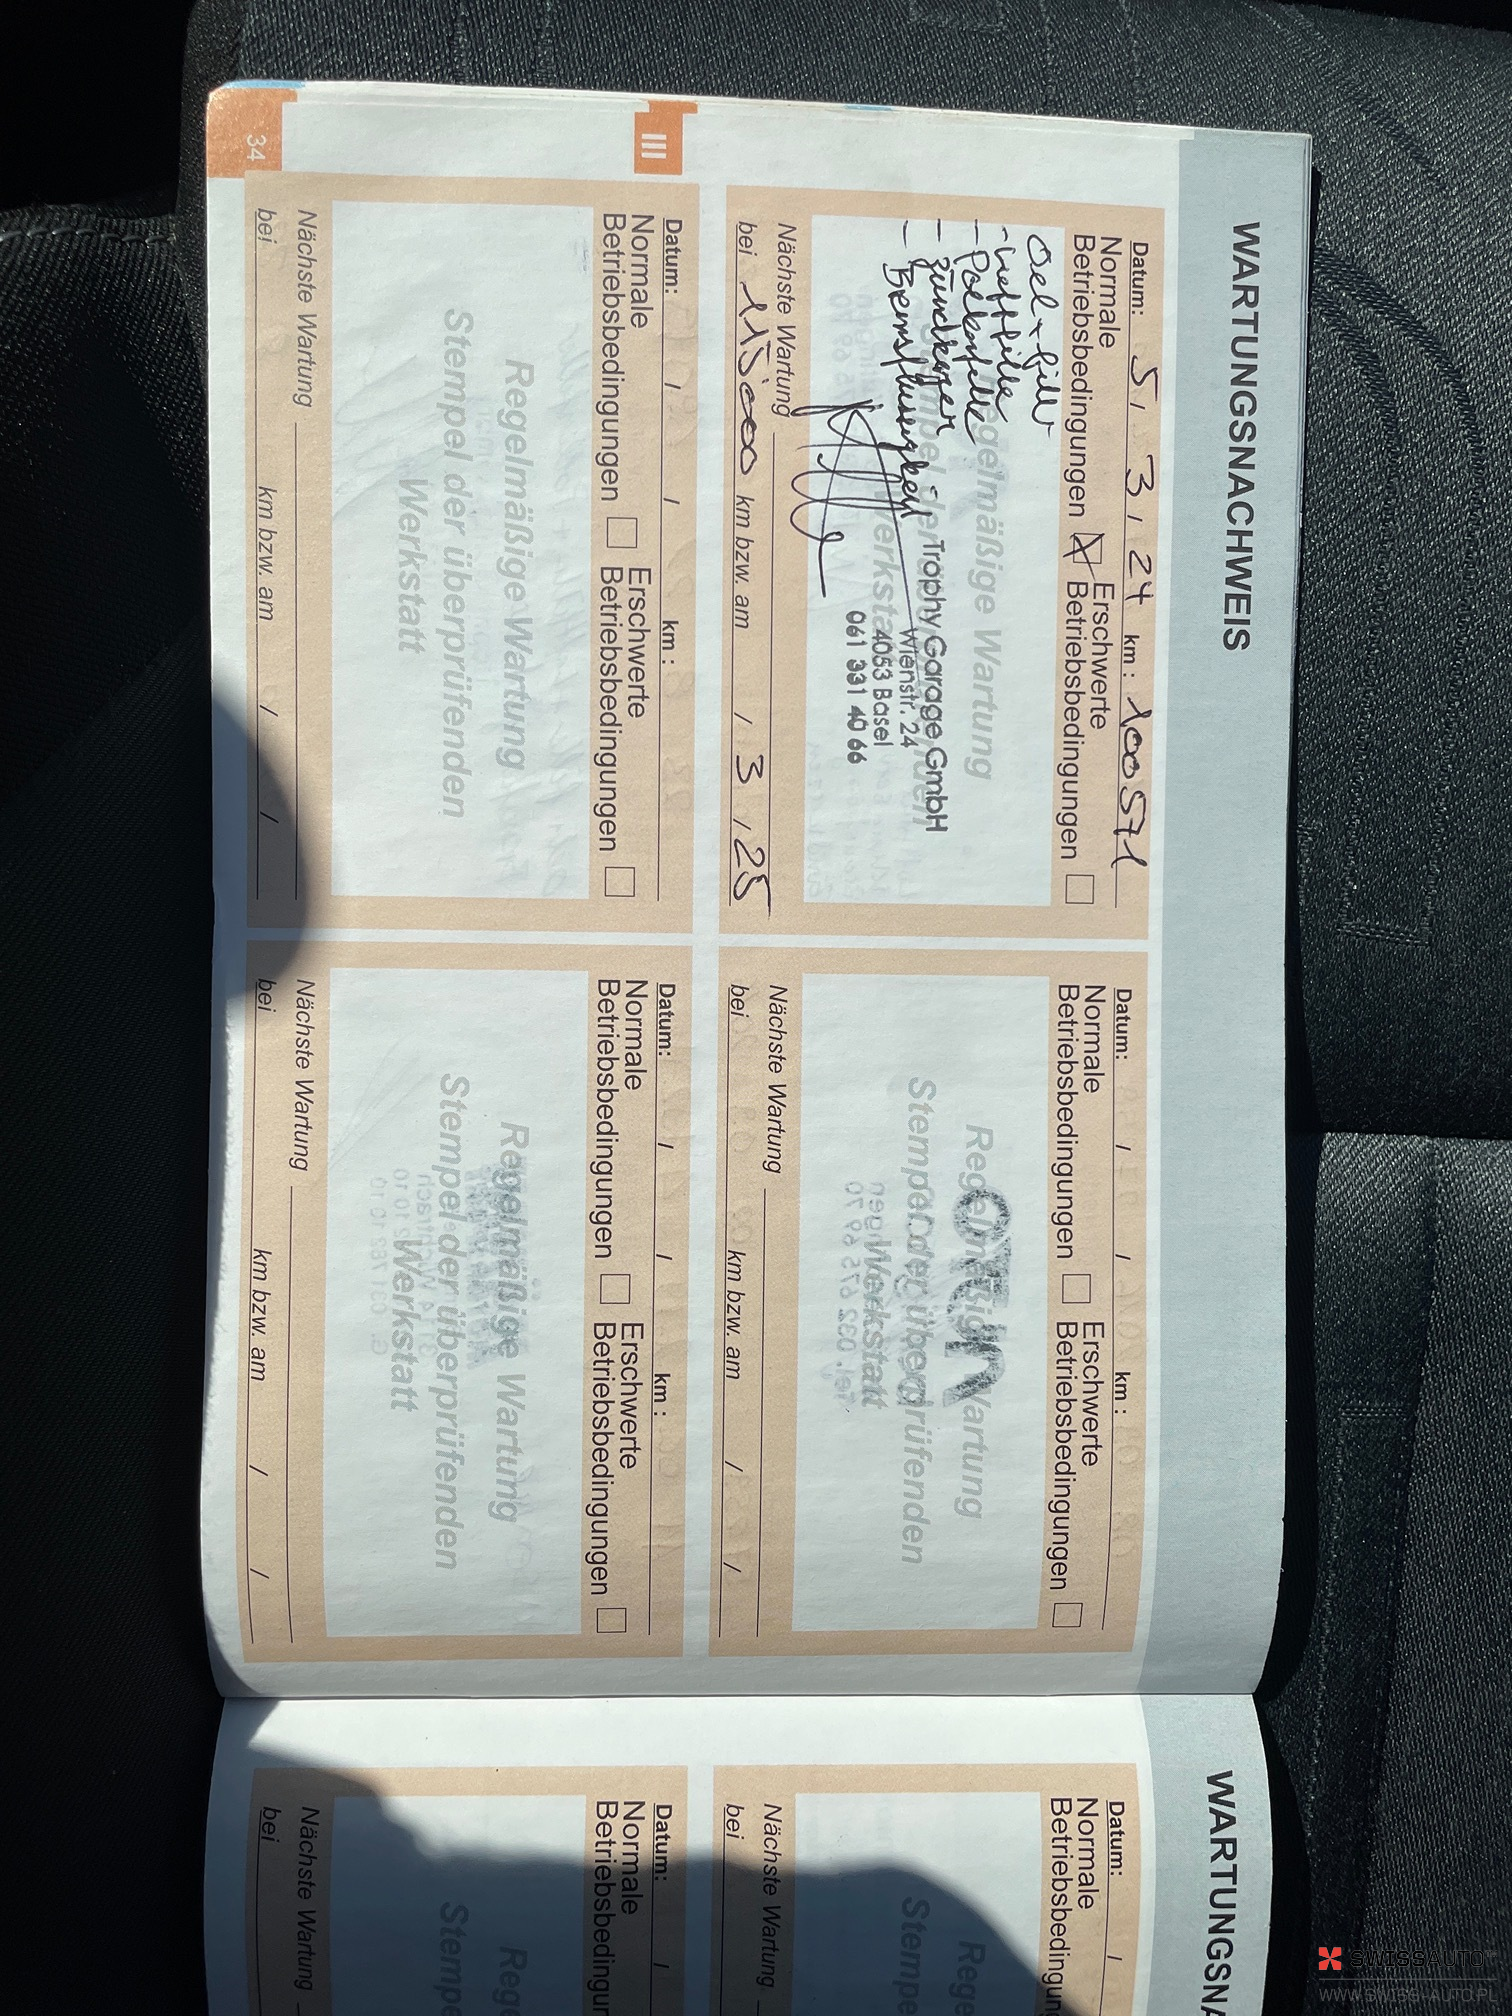 WARTUNGSNACHWEIS
Datum: 5 / 3 / 24 km : 100 571
Normale Betriebsbedingungen Erschwerte Betriebsbedingungen
Regelmäßige Wartung
Stempel der überprüfenden
Werkstatt
Oel + Filter
- Luftfilter
- Pollenfilter
- Zündkerzen
- Bremsflüssigkeit
Trophy Garage GmbH
Wienstr. 24
4053 Basel
061 331 40 66
Nächste Wartung
bei 115000 km bzw. am / 3 / 25
Datum: / / km :
Normale Betriebsbedingungen Erschwerte Betriebsbedingungen
Regelmäßige Wartung
Stempel der überprüfenden
Werkstatt
Nächste Wartung
bei km bzw. am / /
Datum: / / km :
Normale Betriebsbedingungen Erschwerte Betriebsbedingungen
Regelmäßige Wartung
Stempel der überprüfenden
Werkstatt
Nächste Wartung
bei km bzw. am / /
Datum: / / km :
Normale Betriebsbedingungen Erschwerte Betriebsbedingungen
Regelmäßige Wartung
Stempel der überprüfenden
Werkstatt
Nächste Wartung
bei km bzw. am / /
III
34
WARTUNGSNA
Datum: /
Normale
Betriebsbedingun
Rege
Stempe
Nächste Wartung
bei
Datum: /
Normale
Betriebsbedingun
Rege
Stempe
Nächste Wartung
bei
SWISSAUTO
WWW.SWISS-AUTO.PL